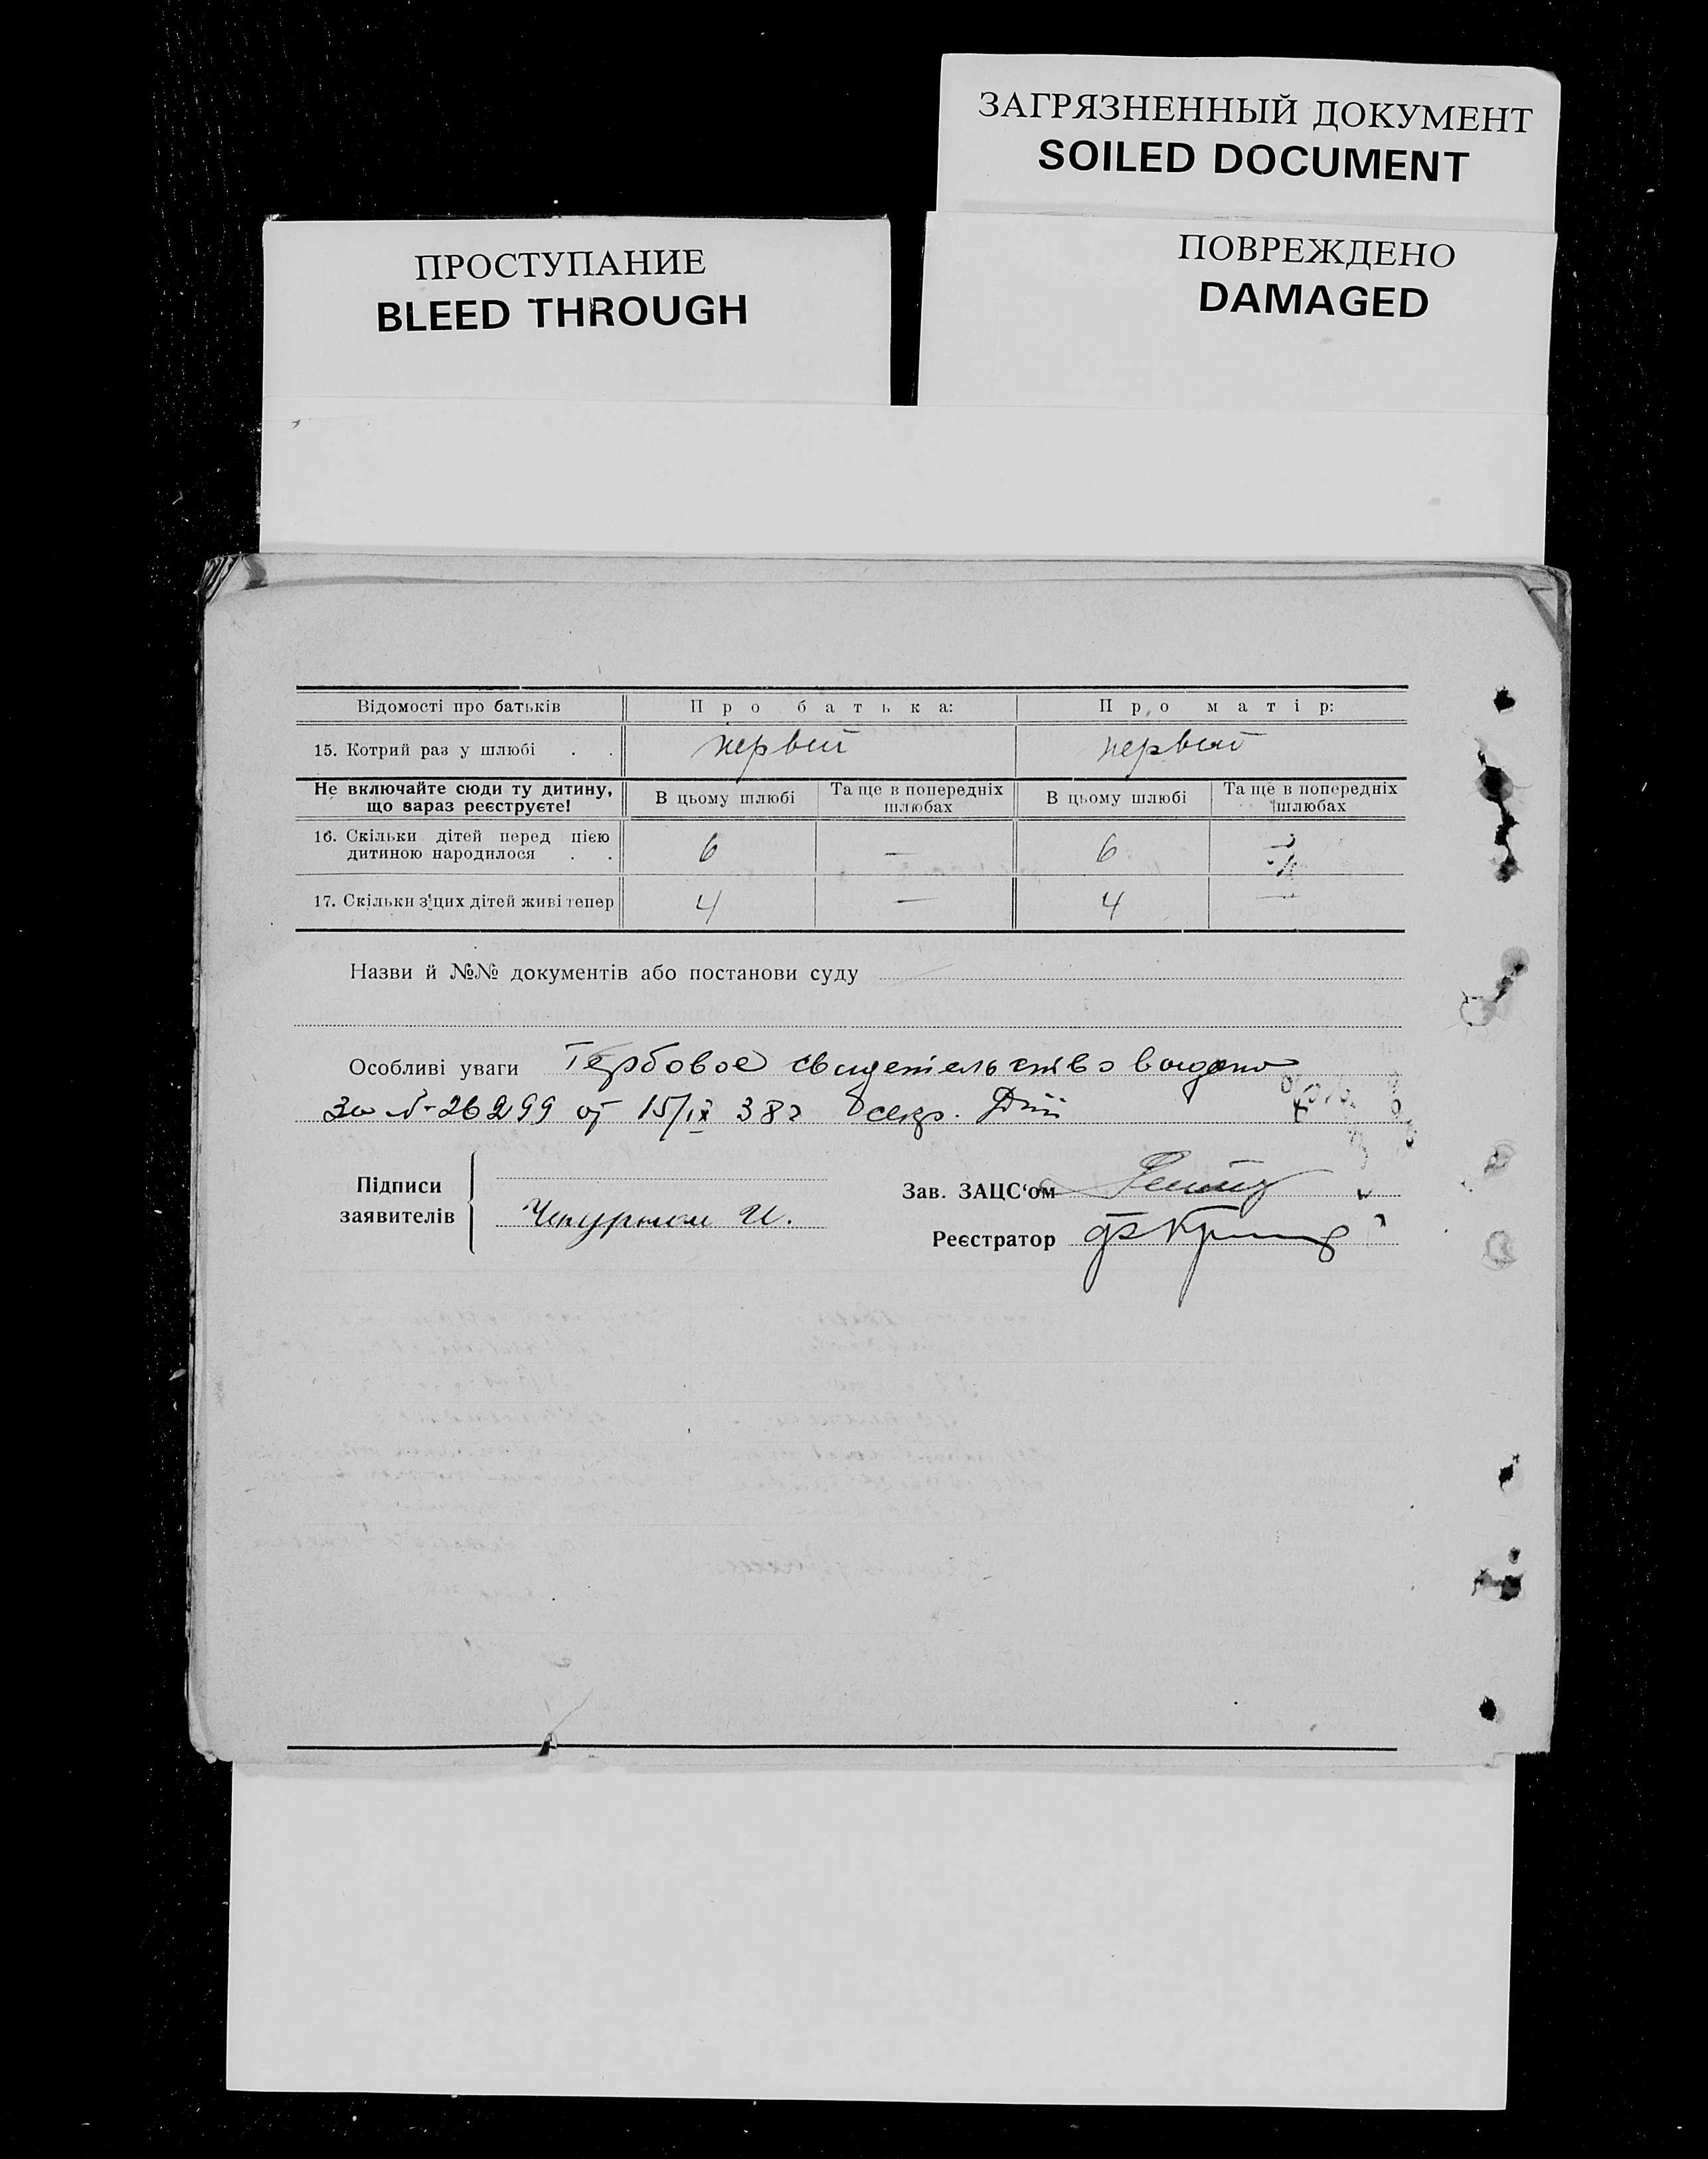 ЗАГРЯЗНЕННЫЙ ДОКУМЕНТ
SOILED DOCUMENT
ПРОСТУПАНИЕ
BLEED THROUGH
ПОВРЕЖДЕНО
DAMAGED
Відомості про батьків Про батька: Про матір:
15. Котрий раз у шлюбі . . первый первый
Не включайте сюди ту дитину, що зараз реєструєте! В цьому шлюбі Та ще в попередніх шлюбах В цьому шлюбі Та ще в попередніх шлюбах
16. Скільки дітей перед цією
дитиною народилося . . 6 — 6
17. Скільки з цих дітей живі тепер 4 — 4 —
Назви й №№ документів або постанови суду
Особливі уваги Гербовое свидетельство выдано
за №-26299 от 15/IX 38г секр.
Підписи
заявителів
Зав. ЗАЦС'ом
Реєстратор